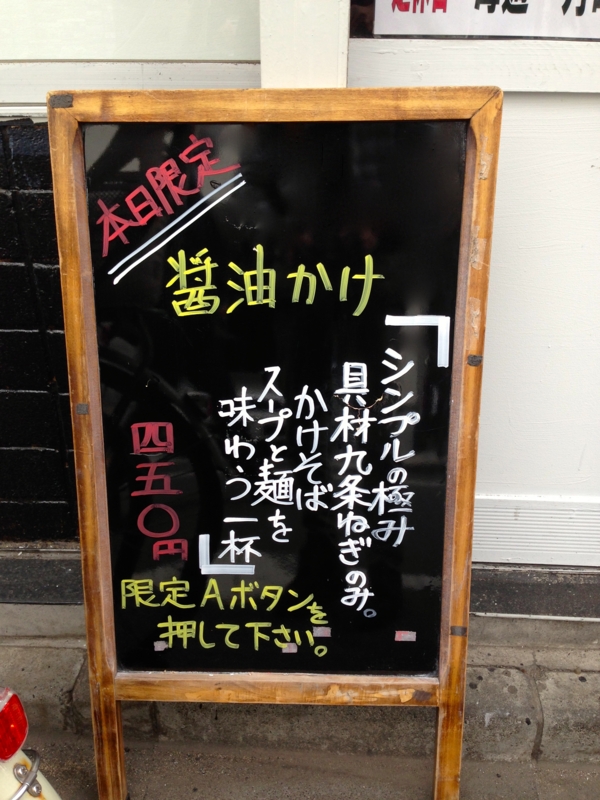 定休日
本日限定
醤油かけ
「シンプルの極み
具材九条ねぎのみ。
かけそば
スープと麺を
味わう一杯」
四五〇円
限定Aボタンを
押して下さい。